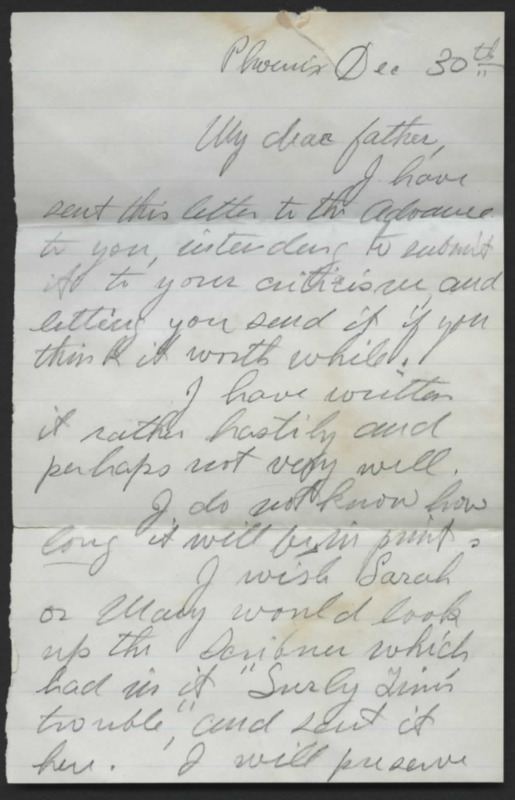 Phoenix Dec 30th
My dear father,
I have
sent this letter to the Advance
to you, intending to submit
it to your criticism, and
letting you send it if you
think it worth while.
I have written
it rather hastily and
perhaps not very well.
I do not know how
long it will be in print.
I wish Sarah
or Mary would look
up the Scribner which
had in it "Surly Tim's
trouble," and sent it
here. I will preserve